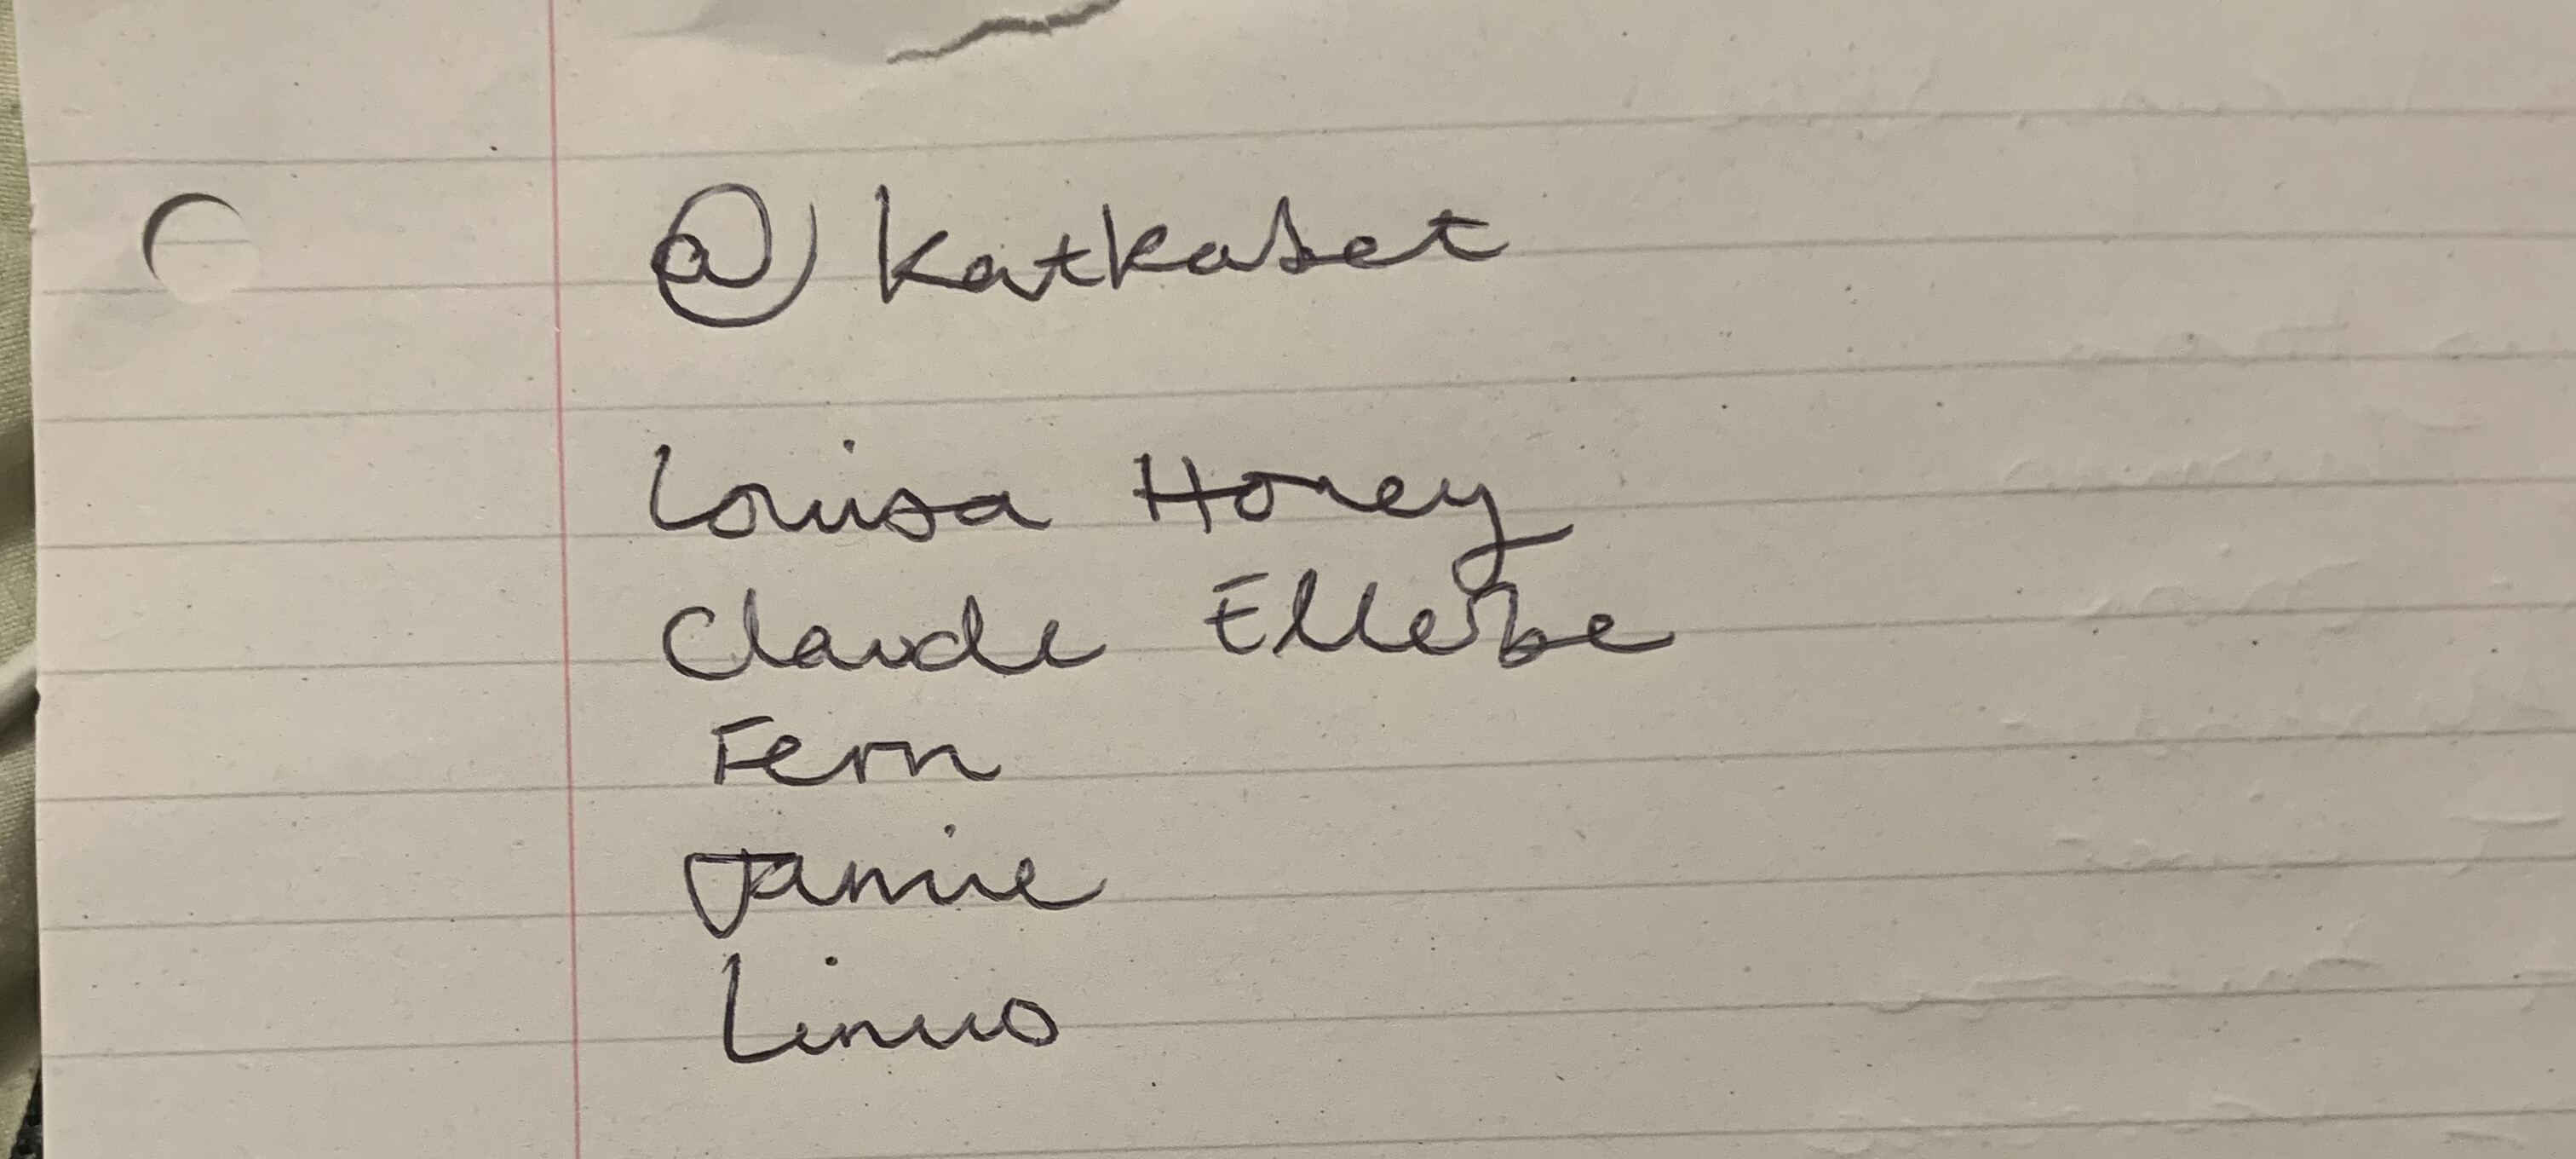 @katkaset
Louisa Honey
Claude Ellerbe
Fern
Jamie
Linus